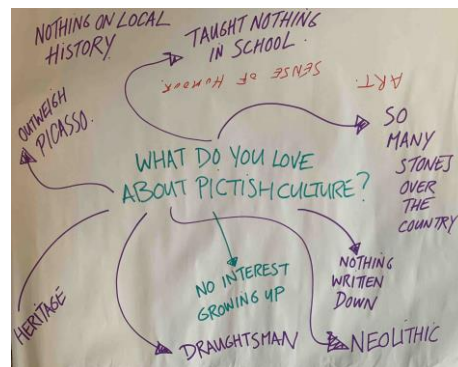 NOTHING ON LOCAL
HISTORY.
TAUGHT NOTHING
IN SCHOOL.
SENSE OF HUMOUR.
ART.
OUTWEIGH
PICASSO.
SO
MANY
STONES
OVER
THE
COUNTRY
WHAT DO YOU LOVE
ABOUT PICTISH CULTURE?
NO INTEREST
GROWING UP
NOTHING
WRITTEN
DOWN
HERITAGE
DRAUGHTSMAN
NEOLITHIC